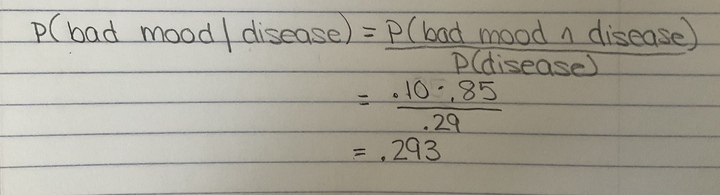 P(bad mood | disease) = P(bad mood ∩ disease)
P(disease)
= .10 · .85
.29
= .293